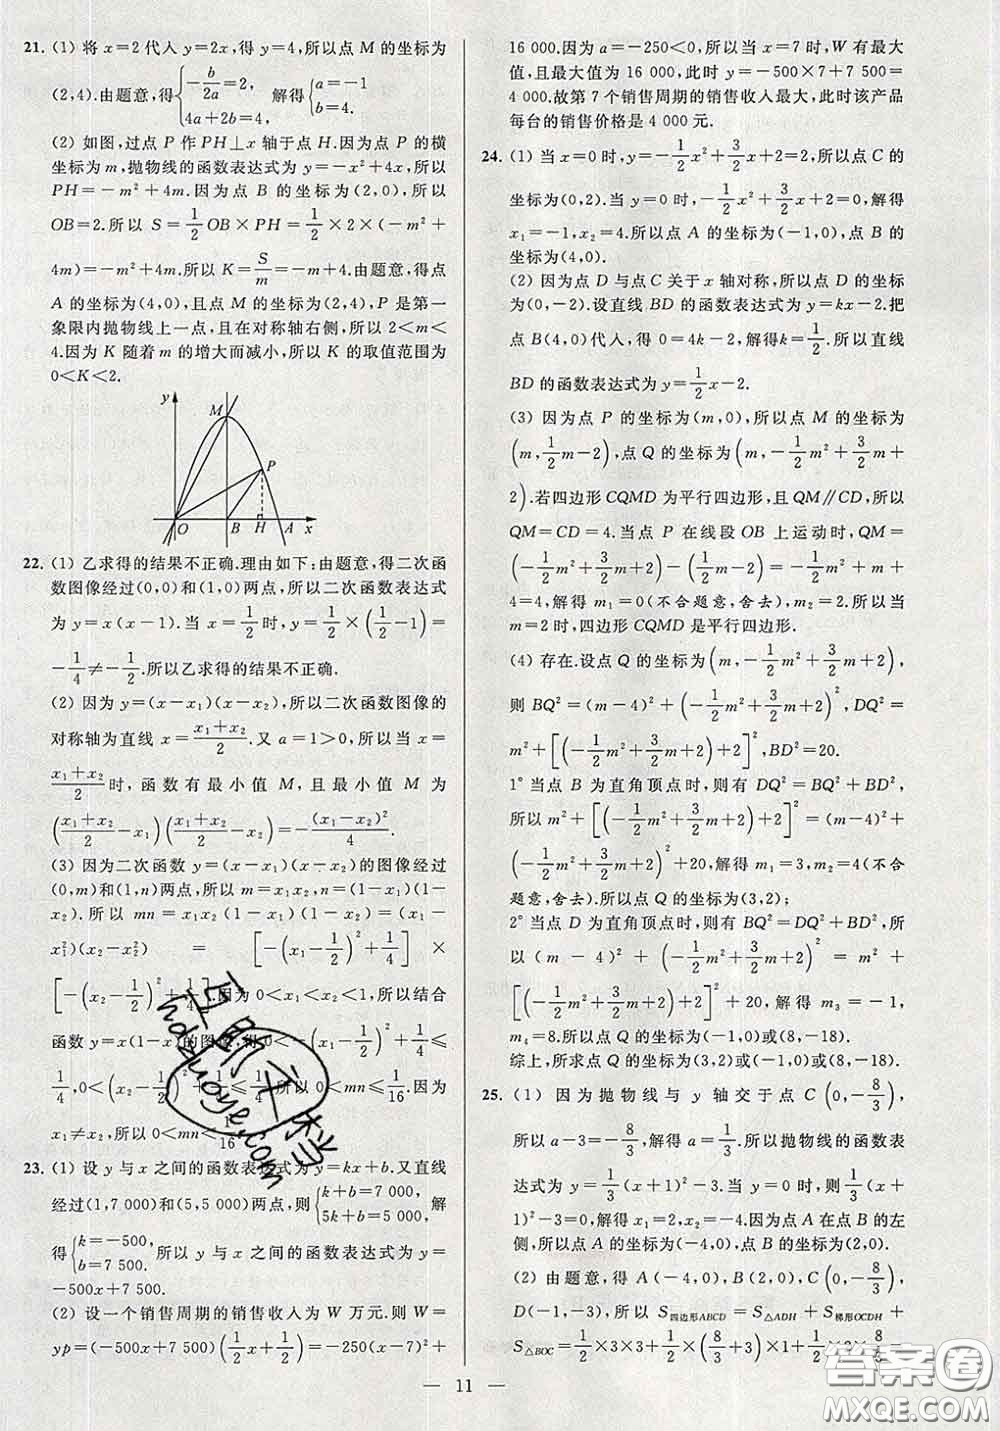 21. (1) 将 x=2 代入 y=2x,得 y=4,所以点 M 的坐标为
(2,4).由题意,得{-b/2a=2, 4a+2b=4, 解得{a=-1 b=4.
(2) 如图,过点 P 作 PH⊥x 轴于点 H.因为点 P 的横
坐标为 m,抛物线的函数表达式为 y=-x²+4x,所以
PH=-m²+4m.因为点 B 的坐标为(2,0),所以
OB=2.所以 S=1/2 OB×PH=1/2×2×(-m²+
4m)=-m²+4m.所以 K=S/m=-m+4.由题意,得点
A 的坐标为(4,0),且点 M 的坐标为(2,4),P 是第一
象限内抛物线上一点,且在对称轴右侧,所以 2<m<
4.因为 K 随着 m 的增大而减小,所以 K 的取值范围为
0<K<2.
y
M
P
O B H A x
22. (1) 乙求得的结果不正确.理由如下:由题意,得二次函
数图像经过(0,0)和(1,0)两点,所以二次函数表达式
为 y=x(x-1).当 x=1/2时,y=1/2×(1/2-1)=
-1/4≠-1/2.所以乙求得的结果不正确.
(2) 因为 y=(x-x₁)(x-x₂),所以二次函数图像的
对称轴为直线 x=(x₁+x₂)/2.又 a=1>0,所以当 x=
(x₁+x₂)/2时,函数有最小值 M,且最小值 M 为
((x₁+x₂)/2-x₁)((x₁+x₂)/2-x₂)=-(x₁-x₂)²/4.
(3) 因为二次函数 y=(x-x₁)(x-x₂)的图像经过
(0,m)和(1,n)两点,所以 m=x₁x₂,n=(1-x₁)(1-
x₂).所以 mn=x₁x₂(1-x₁)(1-x₂)=(x₁-
x₁²)(x₂-x₂²)=[-(x₁-1/2)²+1/4]×
[-(x₂-1/2)²+1/4].因为 0<x₁<x₂<1,所以结合
函数 y=x(1-x)的图像,得 0<-(x₁-1/2)²+1/4≤
1/4,0<-(x₂-1/2)²+1/4≤1/4.所以 0<mn≤1/16.因为
x₁≠x₂,所以 0<mn<1/16.
23. (1) 设 y 与 x 之间的函数表达式为 y=kx+b.又直线
经过(1,7 000)和(5,5 000)两点,则{k+b=7 000, 5k+b=5 000, 解
得{k=-500, b=7 500. 所以 y 与 x 之间的函数表达式为 y=
-500x+7 500.
(2) 设一个销售周期的销售收入为 W 万元.则 W=
yp=(-500x+7 500)(1/2x+1/2)=-250(x-7)²+
16 000.因为 a=-250<0,所以当 x=7 时,W 有最大
值,且最大值为 16 000,此时 y=-500×7+7 500=
4 000.故第 7 个销售周期的销售收入最大,此时该产品
每台的销售价格是 4 000 元.
24. (1) 当 x=0 时,y=-1/2x²+3/2x+2=2,所以点 C 的
坐标为(0,2).当 y=0 时,-1/2x²+3/2x+2=0,解得
x₁=-1,x₂=4.所以点 A 的坐标为(-1,0),点 B 的
坐标为(4,0).
(2) 因为点 D 与点 C 关于 x 轴对称,所以点 D 的坐标
为(0,-2).设直线 BD 的函数表达式为 y=kx-2.把
点 B(4,0)代入,得 0=4k-2,解得k=1/2.所以直线
BD 的函数表达式为 y=1/2x-2.
(3) 因为点 P 的坐标为(m,0),所以点 M 的坐标为
(m,1/2m-2),点 Q 的坐标为(m,-1/2m²+3/2m+
2).若四边形 CQMD 为平行四边形,且 QM∥CD,所以
QM=CD=4.当点 P 在线段 OB 上运动时,QM=
(-1/2m²+3/2m+2)-(1/2m-2)=-1/2m²+m+
4=4,解得 m₁=0(不合题意,舍去),m₂=2.所以当
m=2 时,四边形 CQMD 是平行四边形.
(4) 存在.设点 Q 的坐标为(m,-1/2m²+3/2m+2),
则 BQ²=(m-4)²+(-1/2m²+3/2m+2)²,DQ²=
m²+[(-1/2m²+3/2m+2)+2]²,BD²=20.
1° 当点 B 为直角顶点时,则有 DQ²=BQ²+BD²,
所以 m²+[(-1/2m²+3/2m+2)+2]²=(m-4)²+
(-1/2m²+3/2m+2)²+20,解得 m₁=3,m₂=4(不合
题意,舍去).所以点 Q 的坐标为(3,2);
2° 当点 D 为直角顶点时,则有 BQ²=DQ²+BD²,所
以(m-4)²+(-1/2m²+3/2m+2)²=m²+
[(-1/2m²+3/2m+2)+2]²+20,解得 m₃=-1,
m₄=8.所以点 Q 的坐标为(-1,0)或(8,-18).
综上,所求点 Q 的坐标为(3,2)或(-1,0)或(8,-18).
25. (1) 因为抛物线与 y 轴交于点 C(0,-8/3),
所以 a-3=-8/3,解得 a=1/3.所以抛物线的函数表
达式为 y=1/3(x+1)²-3.当 y=0 时,则有1/3(x+
1)²-3=0.解得 x₁=2,x₂=-4.因为点 A 在点 B 的左
侧,所以点 A 的坐标为(-4,0),点 B 的坐标为(2,0).
(2) 由题意,得 A(-4,0),B(2,0),C(0,-8/3),
D(-1,-3),所以 S四边形ABCD=S△ADH+S梯形OCDH+
S△BOC=1/2×3×3+1/2×(8/3+3)×1+1/2×2×8/3
— 11 —
hdzuoye.com
答案圈
MXQE.COM